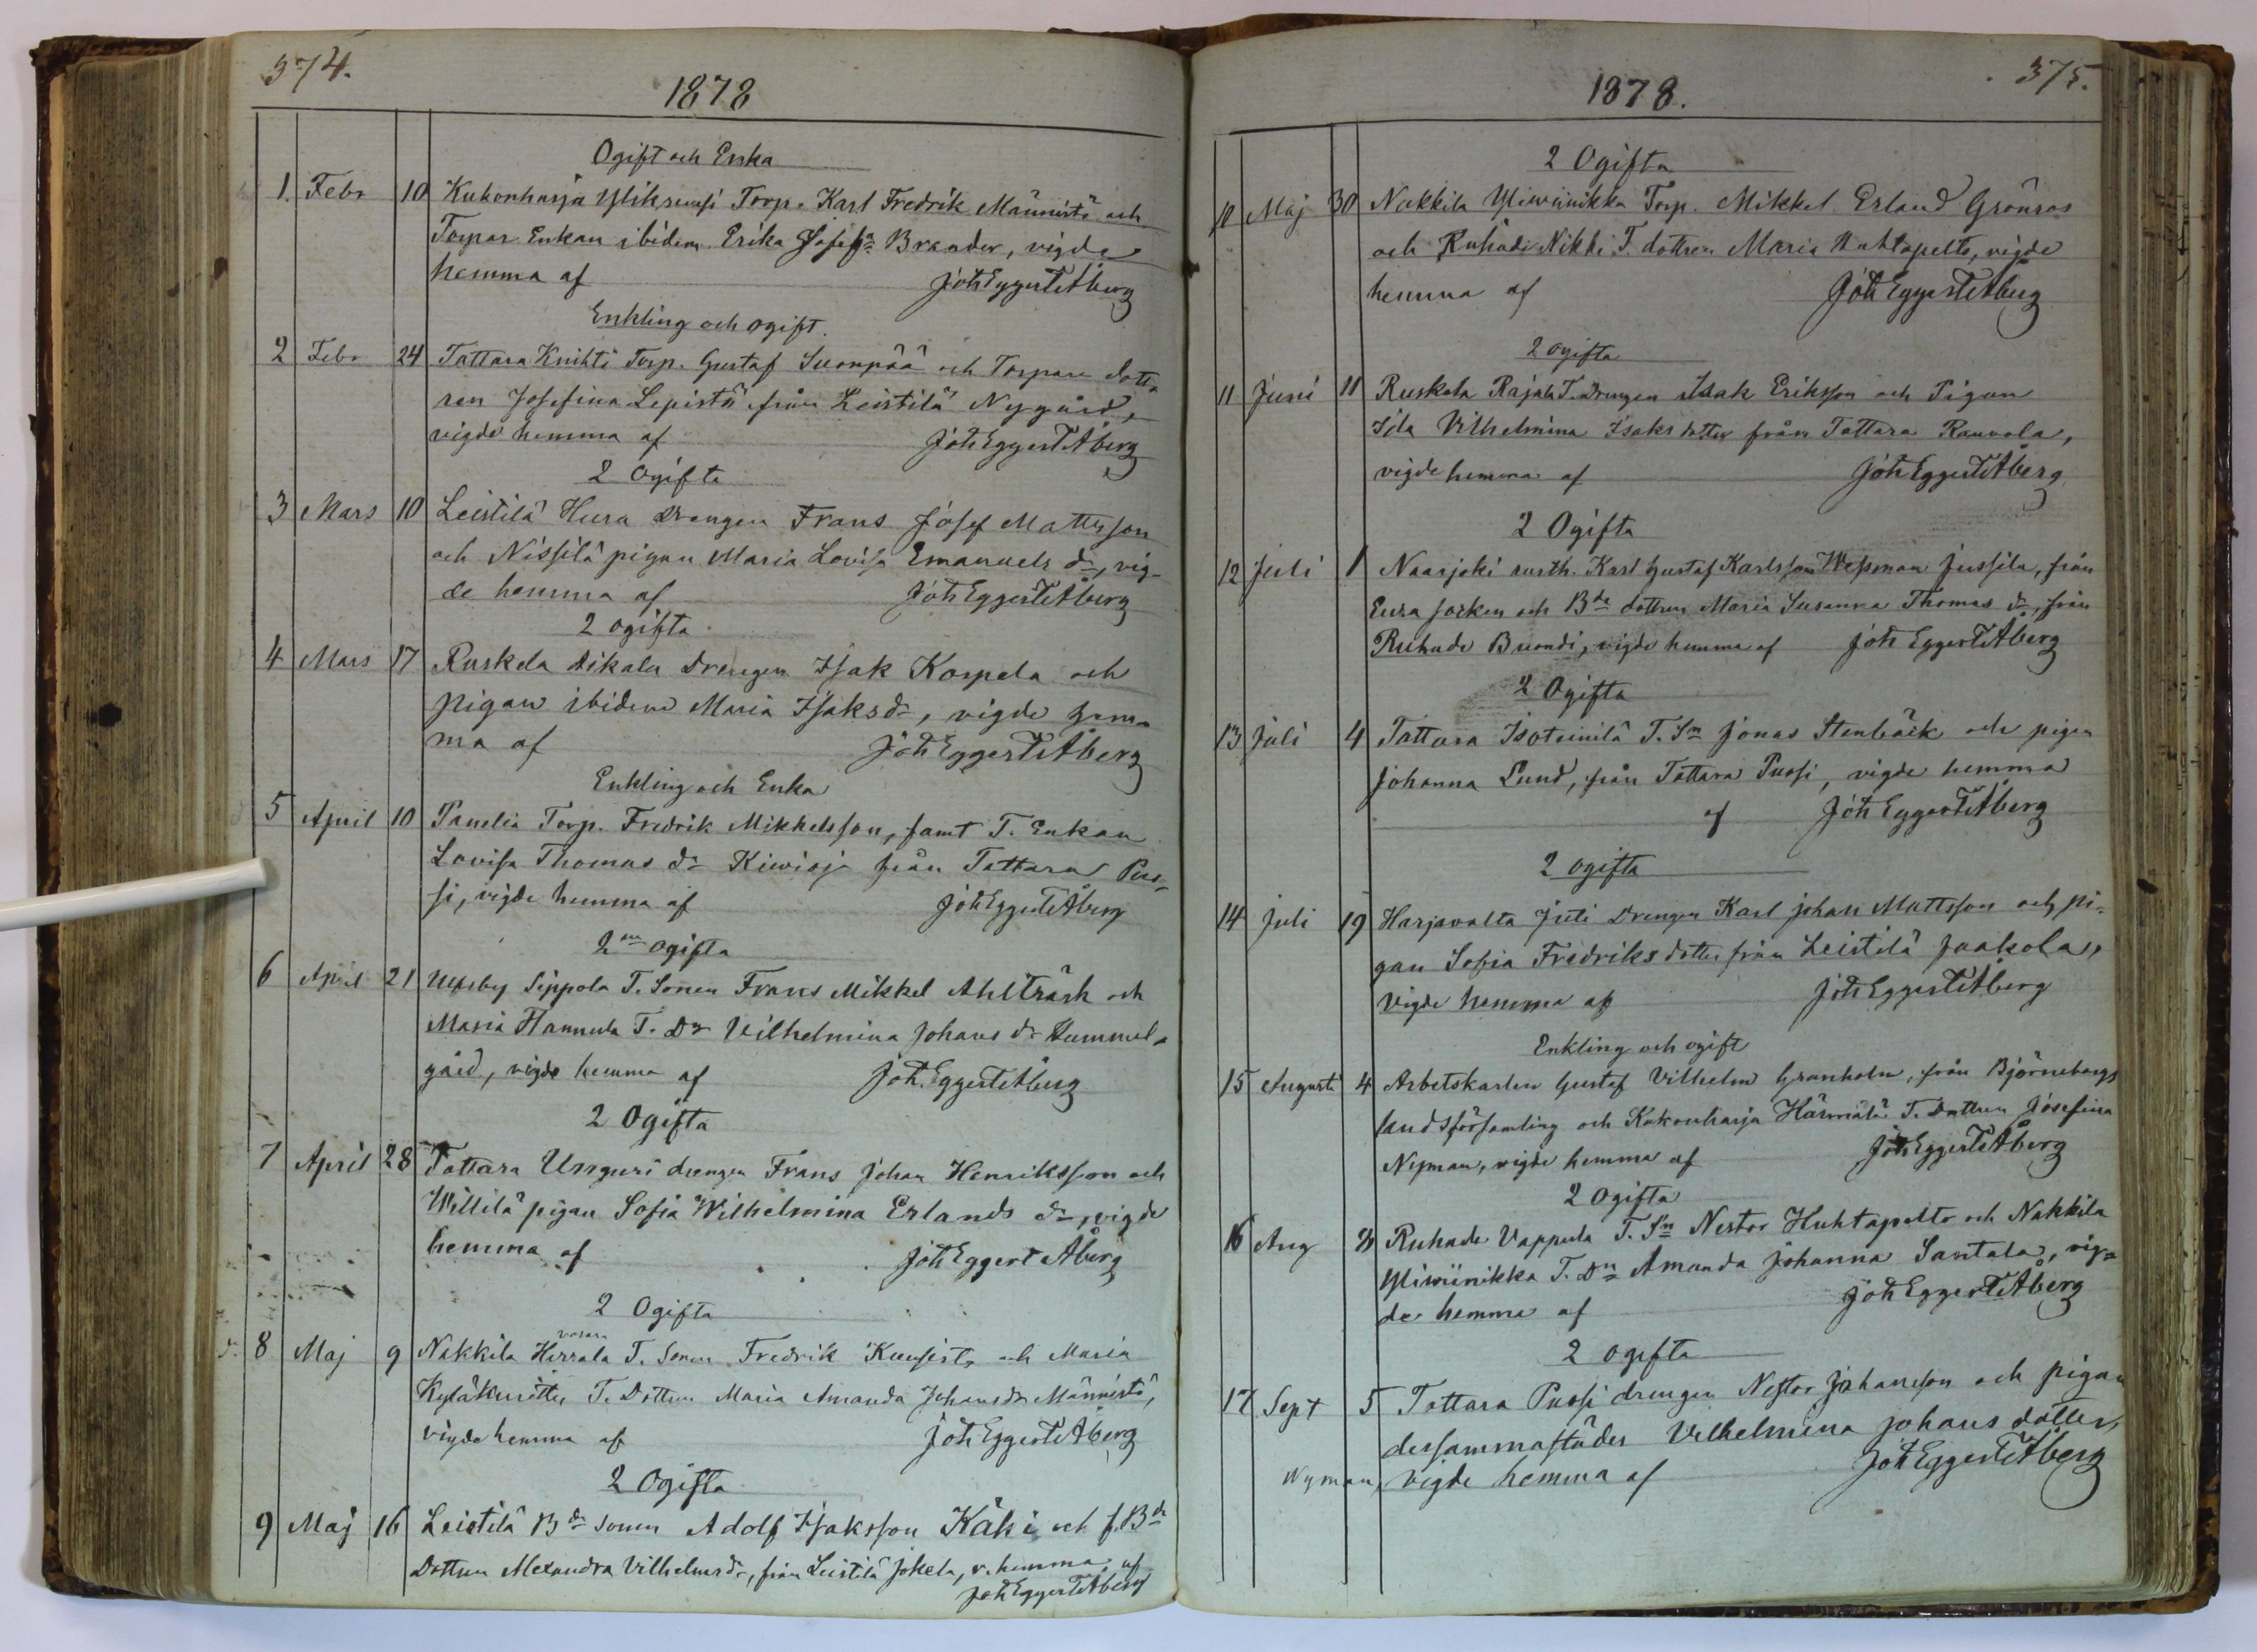 374.
1878
Ogift och Enka
1. Febr 10 Kukonharja Yliksuusi Torp. Karl Fredrik Männistö och
Torpar Enkan ibidem Erika Josefs dr Brander, vigde
hemma af Joh Eggert Åberg
Enkling och ogift.
2 Febr 24 Tattara Knihti Torp. Gustaf Suonpää och Torpare dott-
ren Josefina Lepistö från Leistilä Nygård,
vigde hemma af Joh Eggert Åberg
2 Ogifta
3 Mars 10 Leistilä Hura drengen Frans Josef Mattsson
och Nissilä pigan Maria Lovisa Emanuels dr, vig-
de hemma af Joh Eggert Åberg
2 ogifta
4 Mars 17 Ruskela Dikala Drengen Isak Korpela och
pigan ibidem Maria Isaksdr, vigde hem-
ma af Joh Eggert Åberg
Enkling och Enka
5 April 10 Panelia Torp. Fredrik Mikkelsson, samt T. Enkan
Lovisa Thomas dr Kiwioja från Tattara Pus-
si, vigde hemma af Joh Eggert Åberg
2ne ogifta
6 April 21 Ulfsby Sippola T. Sonen Frans Mikkel Ahlträsk och
Maria Hannula T. Dr Vilhelmina Johans dr Hummel-
gård, vigde hemma af Joh. Eggert Åberg
2 Ogifta
7 April 28 Tattara Unguri drengen Frans Johan Henriksson och
Willilä pigan Sofia Wilhelmina Erlands dr, vigde
hemma af Joh Eggert Åberg
2 Ogifta
8 Maj 9 Nakkila Herrala T. Sonen Fredrik Kuusisto och Maria
T. Dottren Maria Amanda Johansdr Männistö,
vigde hemma af Joh Eggert Åberg
2 Ogifta
9 Maj 16 Leistilä Bde sonen Adolf Isaksson Käki och f. Bde
Dottren Alexandra Vilhelmsdr, från Leistilä Jokela, v. hemma af
Joh Eggert Åberg
375.
1878.
2 Ogifta
10 Maj 30 Nakkila Yliwiinikka Torp. Mikkel Erland Grönros
och Ruhade Nikki T. dottren Maria Huhtapelto, vigde
hemma af Joh Eggert Åberg
2 ogifta
11 Juni 11 Ruskela Rajala T. Drengen Isak Eriksson och Pigan
Ida Vilhelmina Isaks dotter från Tattara Rauvola,
vigde hemma af Joh Eggert Åberg
2 Ogifta
12 Juli 1 Naarjoki rusth. Karl Gustaf Karlsson Wessman Jussila, från
Eura socken och Bde dottren Maria Susanna Thomas dr, från
Ruhade Buondi, vigde hemma af Joh Eggert Åberg
2 Ogifta
13 Juli 4 Tattara Isoteinilä T. Sn Jonas Stenbäck och pigan
Johanna Lund, från Tattara Pussi, vigde hemma
af Joh Eggert Åberg
2 ogifta
14 Juli 19 Harjavalta Juti Drengen Karl Johan Mattsson och pi-
gan Sofia Fredriks dotter från Leistilä Jaakola,
vigde hemma af Joh Eggert Åberg
Enkling och ogift
15 Augusti 4 Arbetskarlen Gustaf Vilhelm Granholm, från Björneborgs
landsförsamling och Kukonharja Härmälä T. Dottren Josefina
Nyman, vigde hemma af Joh Eggert Åberg
2 Ogifta
16 Aug 8 Ruhade Vappula T. Sn Nestor Huhtapelto och Nakkila
Yliwiinikka T. Dn Amanda Johanna Santala, vig-
de hemma af Joh Eggert Åberg
2 ogifta
17 Sept 5 Tattara Pussi drengen Nestor Johansson och pigan
dessammastädes Vilhelmina Johans dotter,
Nyman, vigde hemma af Joh Eggert Åberg